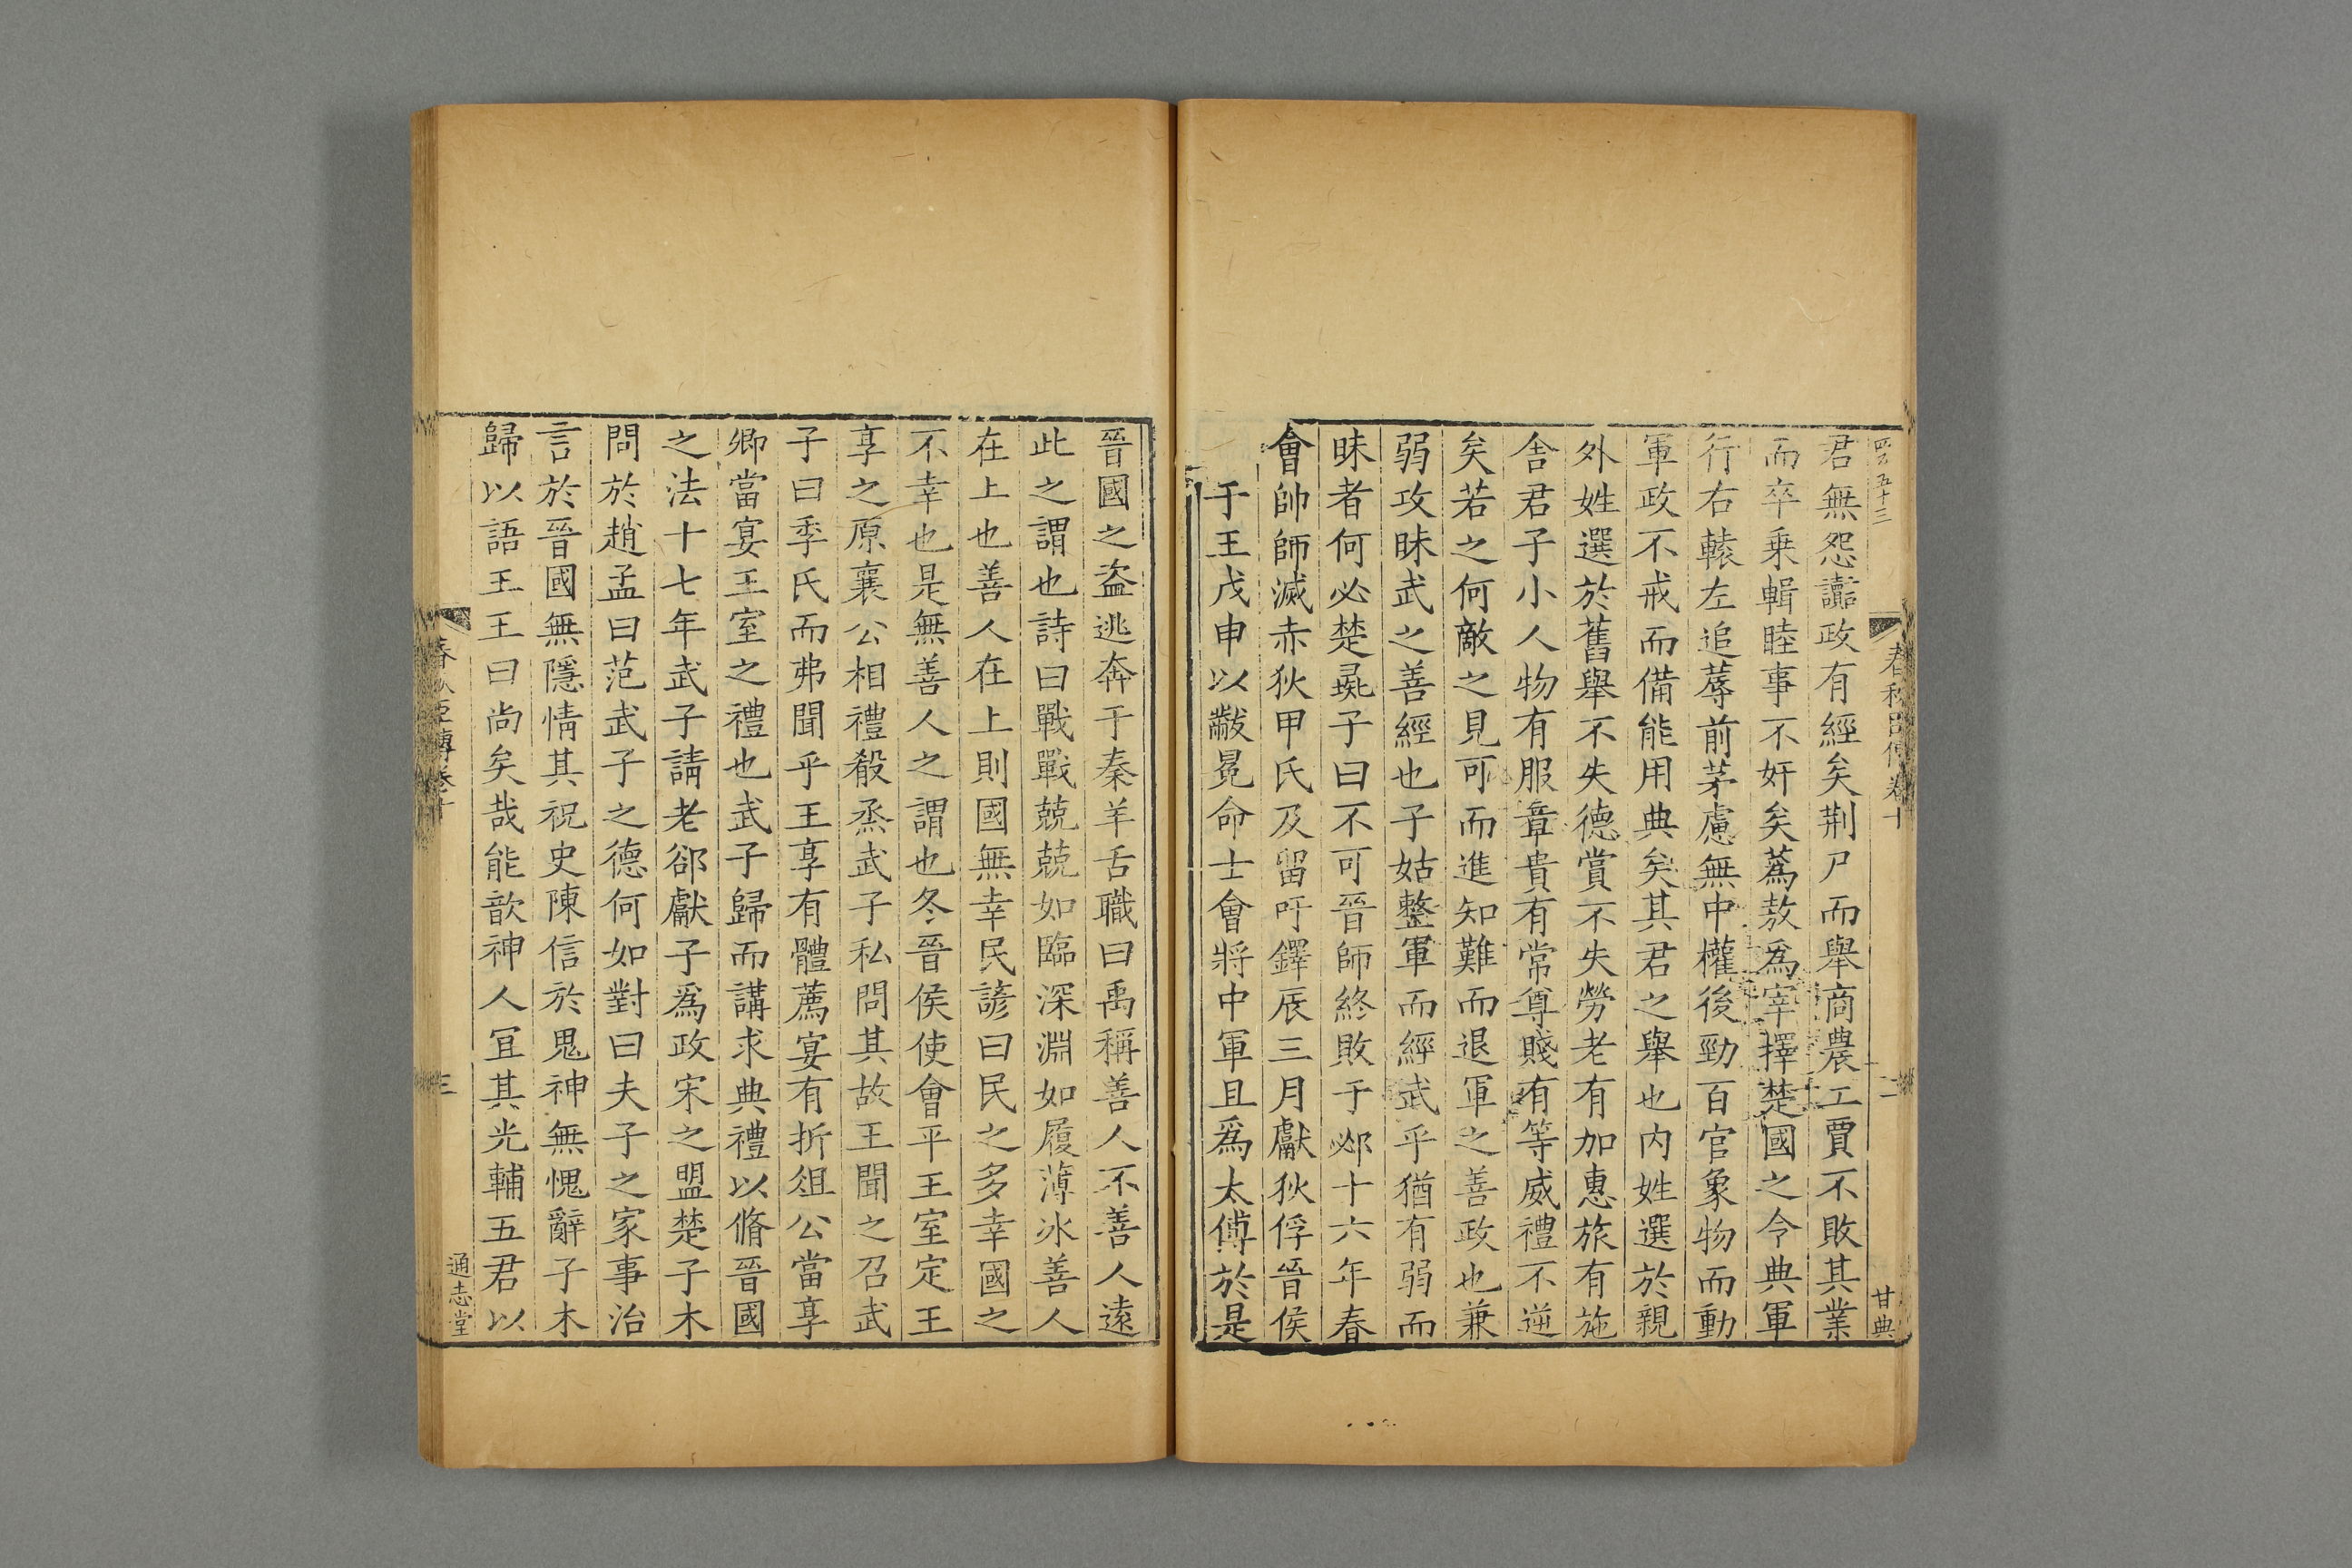 君無怨讟政有經矣荆尸而舉商農工賈不敗其業
而卒乗輯睦事不奸矣蔿敖爲宰擇楚國之令典軍
行右轅左追蓐前茅慮無中權後勁百官象物而動
軍政不戒而備能用典矣其君之舉也内姓選於親
外姓選於舊舉不失德賞不失勞老有加惠旅有施
舎君子小人物有服章貴有常尊賤有等威禮不逆
矣若之何敵之見可而進知難而退軍之善政也兼
弱攻昧武之善經也子姑整軍而經武乎猶有弱而
昧者何必楚彘子曰不可晉師終敗于邲十六年春
會帥師滅赤狄甲氏及留吁鐸辰三月獻狄俘晉侯
于王戊申以黻冕命士會將中軍且爲太傅於是
晉國之盗逃奔于秦羊舌職曰禹稱善人不善人遠
此之謂也詩曰戰戰兢兢如臨深淵如履薄冰善人
在上也善人在上則國無幸民諺曰民之多幸國之
不幸也是無善人之謂也冬晉侯使會平王室定王
享之原襄公相禮殽烝武子私問其故王聞之召武
子曰季氏而弗聞乎王享有體薦宴有折俎公當享
卿當宴王室之禮也武子歸而講求典禮以脩晉國
之法十七年武子請老郤獻子爲政宋之盟楚子木
問於趙孟曰范武子之德何如對曰夫子之家事治
言於晉國無隱情其祝史陳信於鬼神無愧辭子木
歸以語王王曰尚矣哉能歆神人宜其光輔五君以
春秋臣傳卷十
二
甘典
三
通志堂